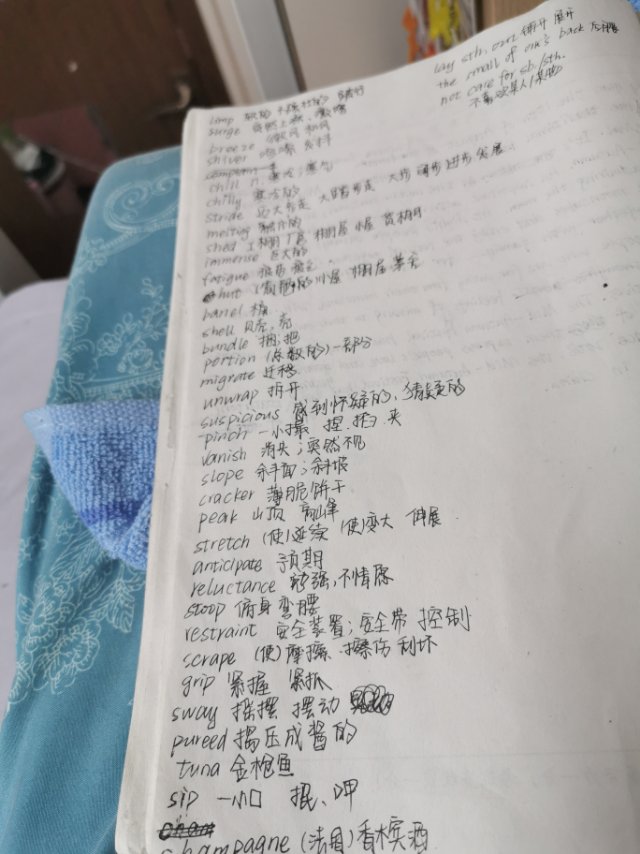 lay sth. out 铺开 展开
the small of one's back 后腰
not care for sb./sth.
不喜欢某人/某物
limp
surge 突然上涨
breeze 微风 和风
shiver 哆嗦 发抖
chill n 寒冷;寒气
chilly 寒冷的
stride 迈大步走 大踏步走 大步 阔步 进步 发展
melting
shed 工棚 厂房 棚屋 货棚
immense 巨大的
fatigue 疲劳
hut 小屋 棚屋 茅舍
barrel 桶
shell 贝壳,壳
bundle 捆,把
portion (总数的)一部分
migrate 迁移
unwrap 拆开
suspicious 感到怀疑的,猜疑的
pinch 一小撮 捏 夹
vanish 消失;突然不见
slope 斜面;斜坡
cracker 薄脆饼干
peak 山顶 高峰
stretch (使)延续 (使)变大 伸展
anticipate 预期
reluctance 勉强,不情愿
stoop 俯身 弯腰
restraint 安全装置;安全带 控制
scrape (使)摩擦 擦伤 刮坏
grip 紧握 紧抓
sway 摇摆 摆动
pureed 捣压成酱的
tuna 金枪鱼
sip 一小口 抿、呷
champagne (法国)香槟酒